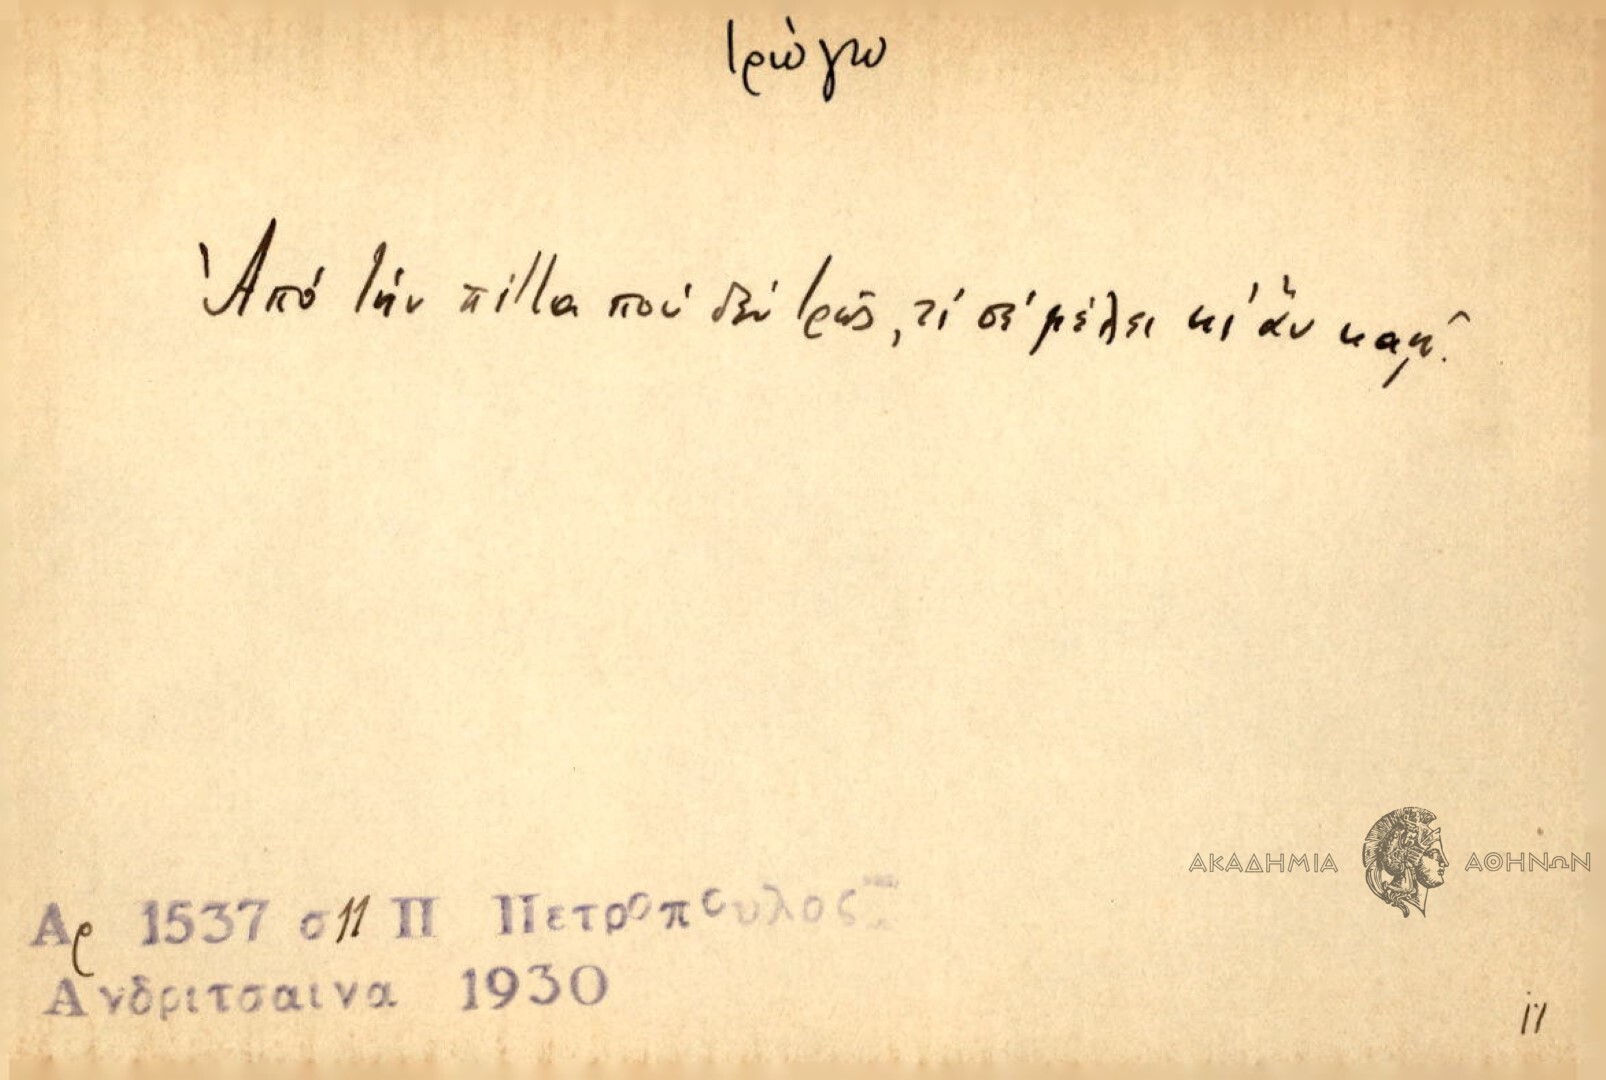 τρώγω
Ἀπό τήν πίττα πού δέν τρῶς, τί σέ μέλει κι' ἄν καῆ.
ΑΚΑΔΗΜΙΑ ΑΘΗΝΩΝ
Αρ 1537 σ 11 Π Πετροπουλος
Ανδριτσαινα 1930